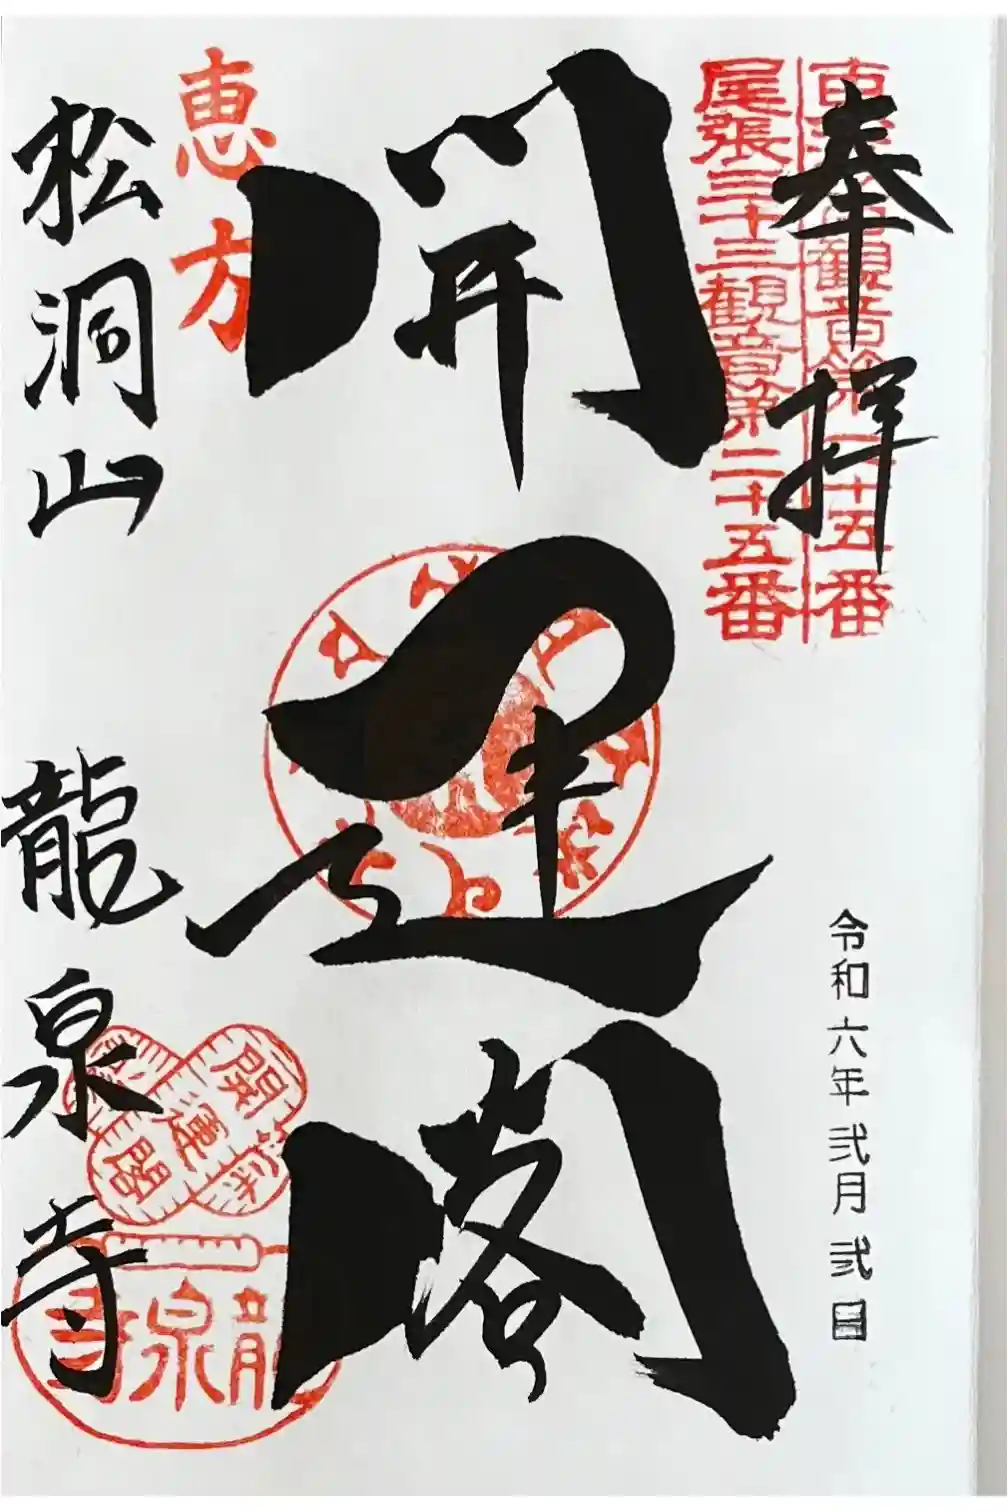 奉拝
観音第
十五番
尾張三十三観音第二十五番
令和六年弐月弐日
開運閣
恵方
松洞山 龍泉寺
開運閣
龍泉寺